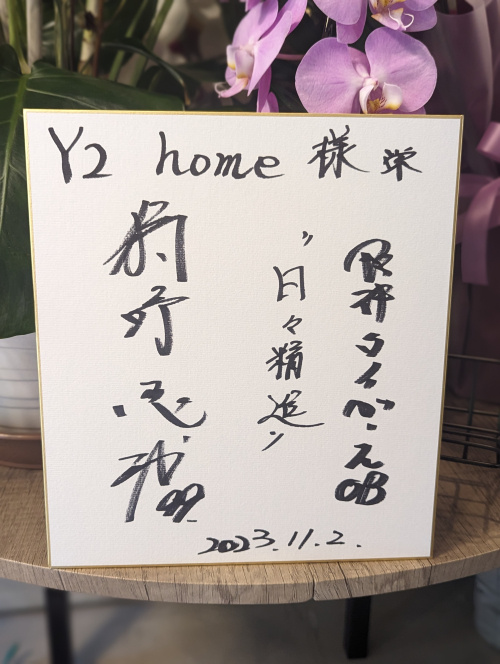 Y2 home 様
阪神タイガースOB
〝日々精進〟
狩野恵輔 99
2023.11.2.